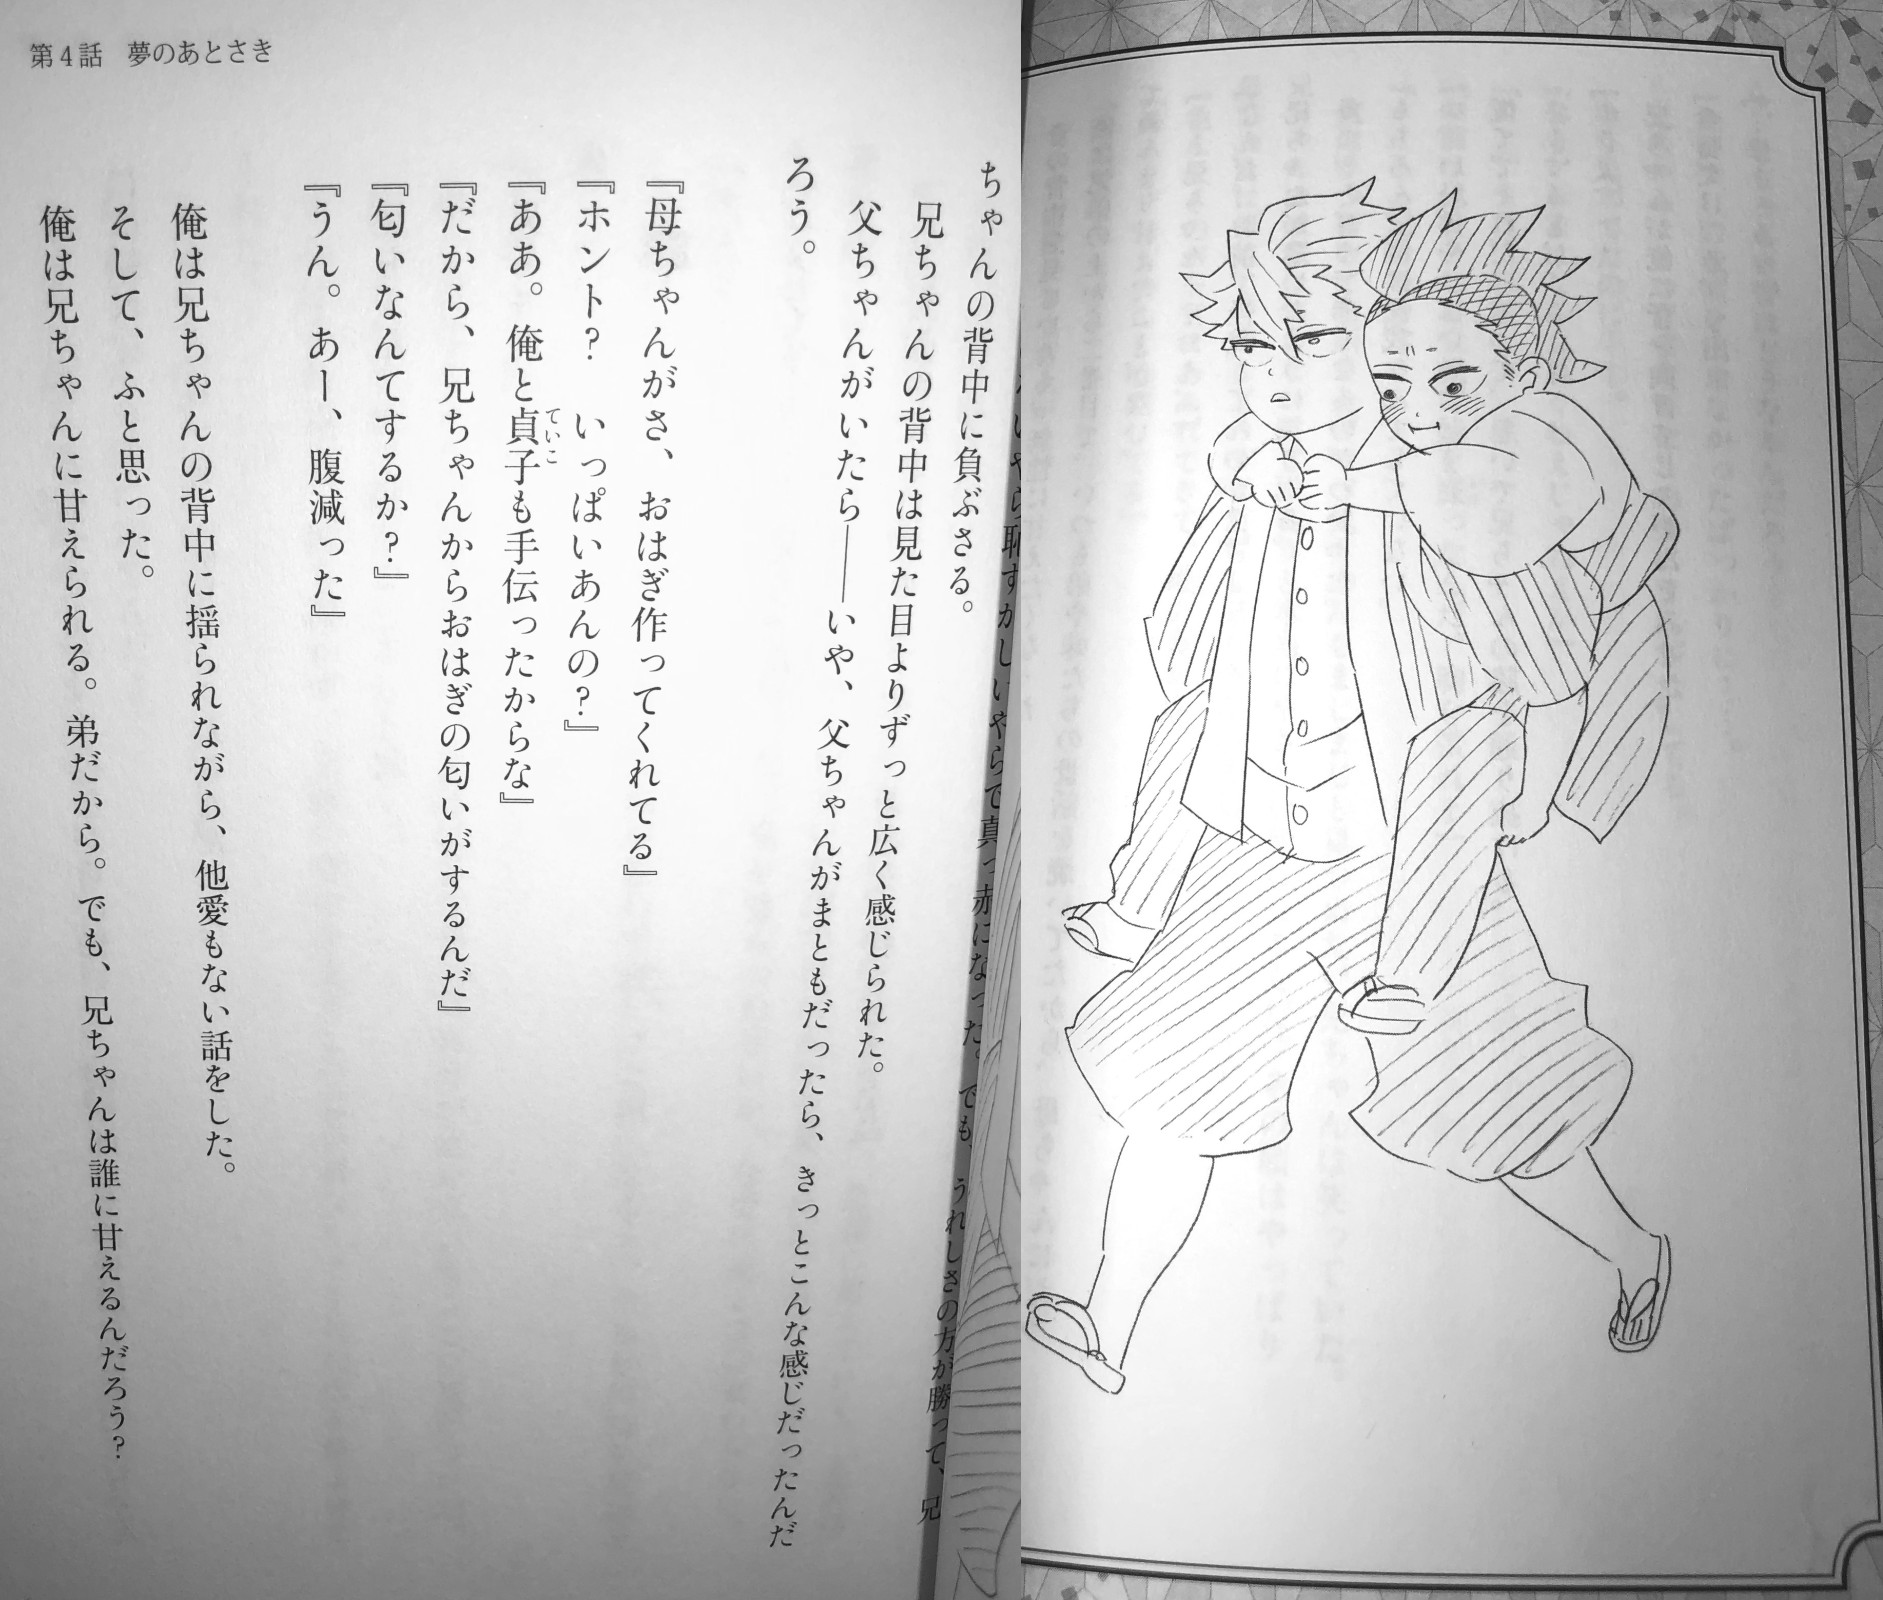 第4話 夢のあとさき
いやら恥ずかしいやらで真っ赤になった。でも、うれしさの方が勝って、兄
ちゃんの背中に負ぶさる。
兄ちゃんの背中は見た目よりずっと広く感じられた。
父ちゃんがいたら――いや、父ちゃんがまともだったら、きっとこんな感じだったんだ
ろう。
『母ちゃんがさ、おはぎ作ってくれてる』
『ホント? いっぱいあんの?』
『ああ。俺と貞子も手伝ったからな』
ていこ
『だから、兄ちゃんからおはぎの匂いがするんだ』
『匂いなんてするか?』
『うん。あー、腹減った』
俺は兄ちゃんの背中に揺られながら、他愛もない話をした。
そして、ふと思った。
俺は兄ちゃんに甘えられる。弟だから。でも、兄ちゃんは誰に甘えるんだろう?